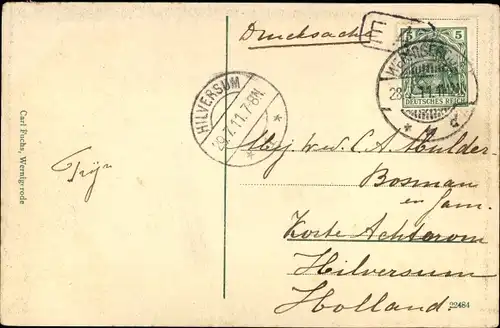 Drucksache
E
5 5
DEUTSCHES REICH
WERNIGERODE
HILVERSUM
29.7.11.7-8N.
Mej. wed. C. A. Mulder-
Bosman
en fam.
Korte Achterom
Hilversum
Holland.
Carl Fuchs, Wernigerode
22484